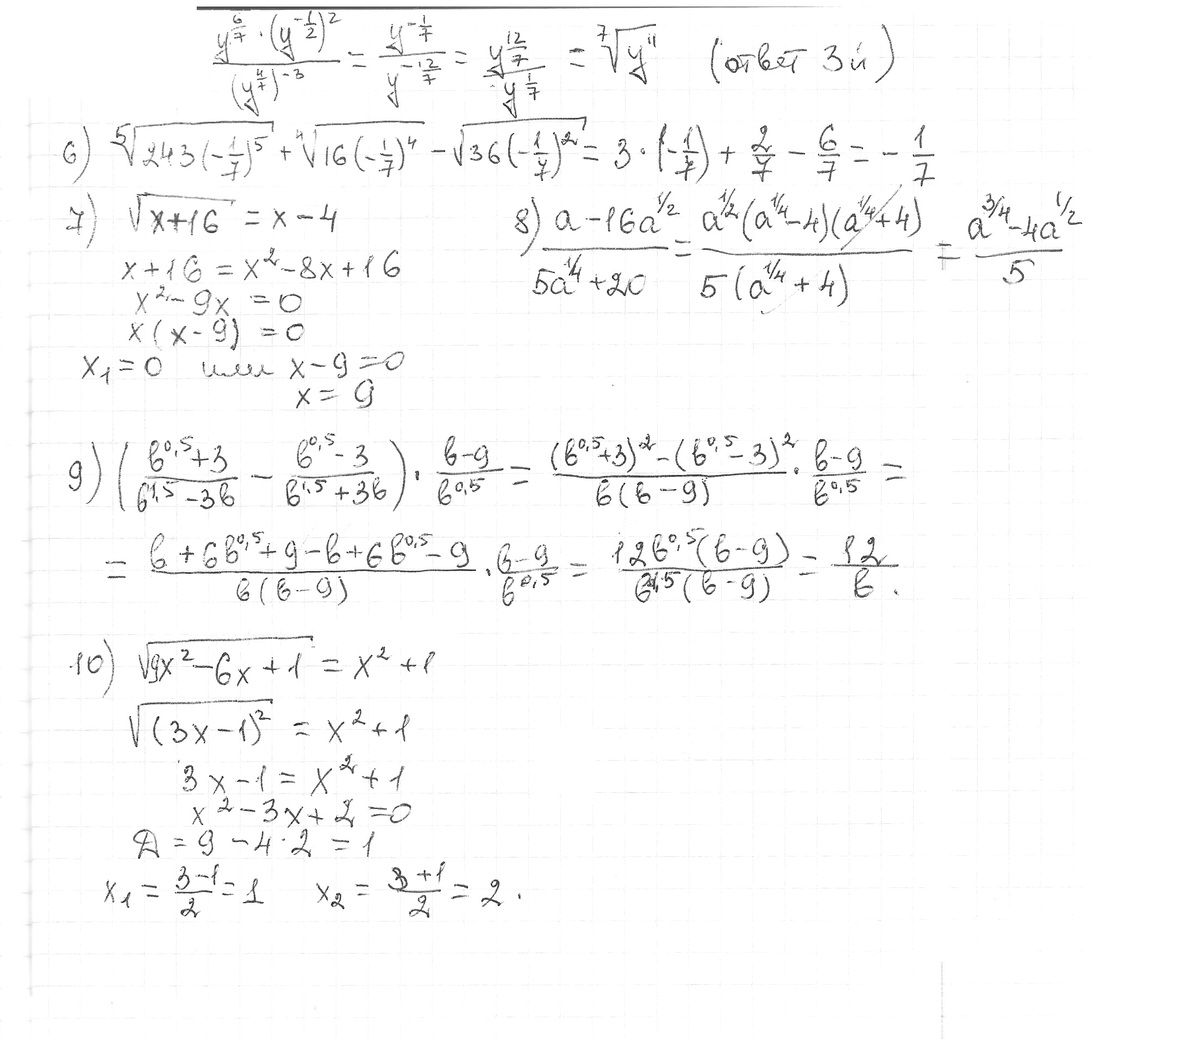 y^(6/7) · (y^(-1/2))^2 / (y^(4/7))^(-3) = y^(-1/7) / y^(-12/7) = y^(12/7) / y^(1/7) = ⁷√y¹¹ (ответ 3й)
6) ⁵√(243(-1/7)^5) + ⁴√(16(-1/7)^4) - √(36(-1/7)^2) = 3 · (-1/7) + 2/7 - 6/7 = - 1/7
7) √(x+16) = x-4
x+16 = x²-8x+16
x²-9x = 0
x(x-9) = 0
x₁=0 или x-9=0
x = 9
8) (a-16a^(1/2)) / (5a^(1/4)+20) = a^(1/2)(a^(1/4)-4)(a^(1/4)+4) / 5(a^(1/4)+4) = (a^(3/4)-4a^(1/2)) / 5
9) ((в^0,5+3)/(в^1,5-3в) - (в^0,5-3)/(в^1,5+3в)) · (в-9)/в^0,5 = ((в^0,5+3)²-(в^0,5-3)²)/(в(в-9)) · (в-9)/в^0,5 =
= (в+6в^0,5+9-в+6в^0,5-9)/(в(в-9)) · (в-9)/в^0,5 = 12в^0,5(в-9)/(в^1,5(в-9)) = 12/в.
10) √(9x²-6x+1) = x²+1
√((3x-1)²) = x²+1
3x-1 = x²+1
x²-3x+2=0
Д = 9-4·2 = 1
x₁ = (3-1)/2 = 1 x₂ = (3+1)/2 = 2.